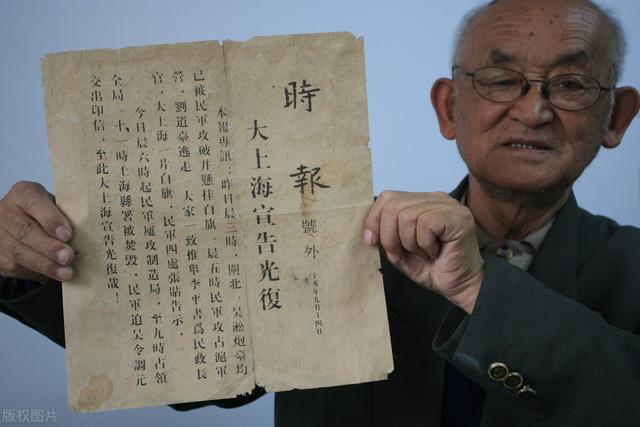 時報
號外
辛亥年九月十四日
大上海宣告光復
本報專訊：昨日晨三時，閘北、吳淞炮臺均
已被民軍攻破并懸挂白旗。晨五時民軍攻占滬軍
營，劉道臺逃走。大家一致推舉李平書爲民政長
官，大上海一片白旗，民軍四處張貼告示，
今日晨六時起民軍屡攻制造局，至九時占領
全局。十一時上海縣署被焚毁，民軍迫吴令調元
交出印信，至此大上海宣告光復哉！
版权图片